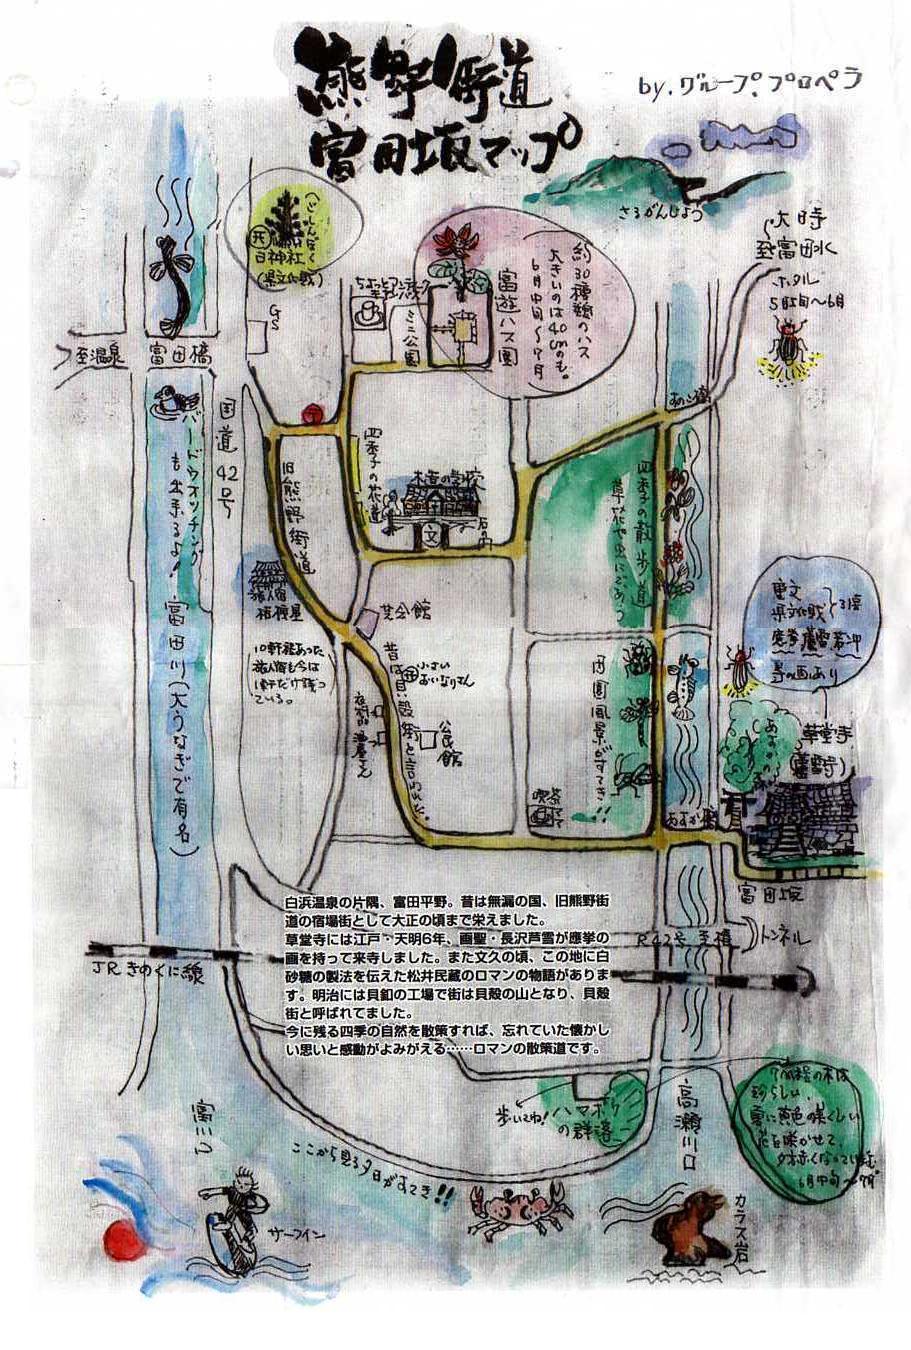 熊野街道
富田坂マップ
by.グループ.プロペラ
さるがんじょう
大時
至富田水
ホタル
5月5日〜6月
(ごしんぼく
日神社
(県文化戝)
GS
ミニ公園
富遊ハス園
約30種類のハス
大きいのは40cmのも。
6月中旬〜7月
至温泉
富田橋
国道42号
バードウオッチング
も出来るよ!
富田川(大うなぎで有名)
旧熊野街道
四季子の花道
木香の学校
文
四季子の散歩道
草花や虫にであう
芝会館
10軒程あった
旅人宿も今は
1軒だけ残っ
ている。
小さい
おいなりさん
昔は貝殻街と言われた。
公民館
田園風景がすてき!!
喫茶
重文
県文化戝
草堂寺
(蘆雪寺)
富田坂
トンネル
JRきのくに線
白浜温泉の片隅、富田平野。昔は無漏の国、旧熊野街
道の宿場街として大正の頃まで栄えました。
草堂寺には江戸・天明6年、画聖・長沢芦雪が應挙の
画を持って来寺しました。また文久の頃、この地に白
砂糖の製法を伝えた松井民蔵のロマンの物語がありま
す。明治には貝釦の工場で街は貝殻の山となり、貝殻
街と呼ばれてました。
今に残る四季の自然を散策すれば、忘れていた懐かし
い思いと感動がよみがえる……ロマンの散策道です。
歩いてね!
ハマボウ
の群落
高瀬川口
珍らしい。
夏に黄色の美しい
花を咲かせて、
6月中旬〜7月
ここから見る夕日がすてき!!
サーフィン
カラス岩